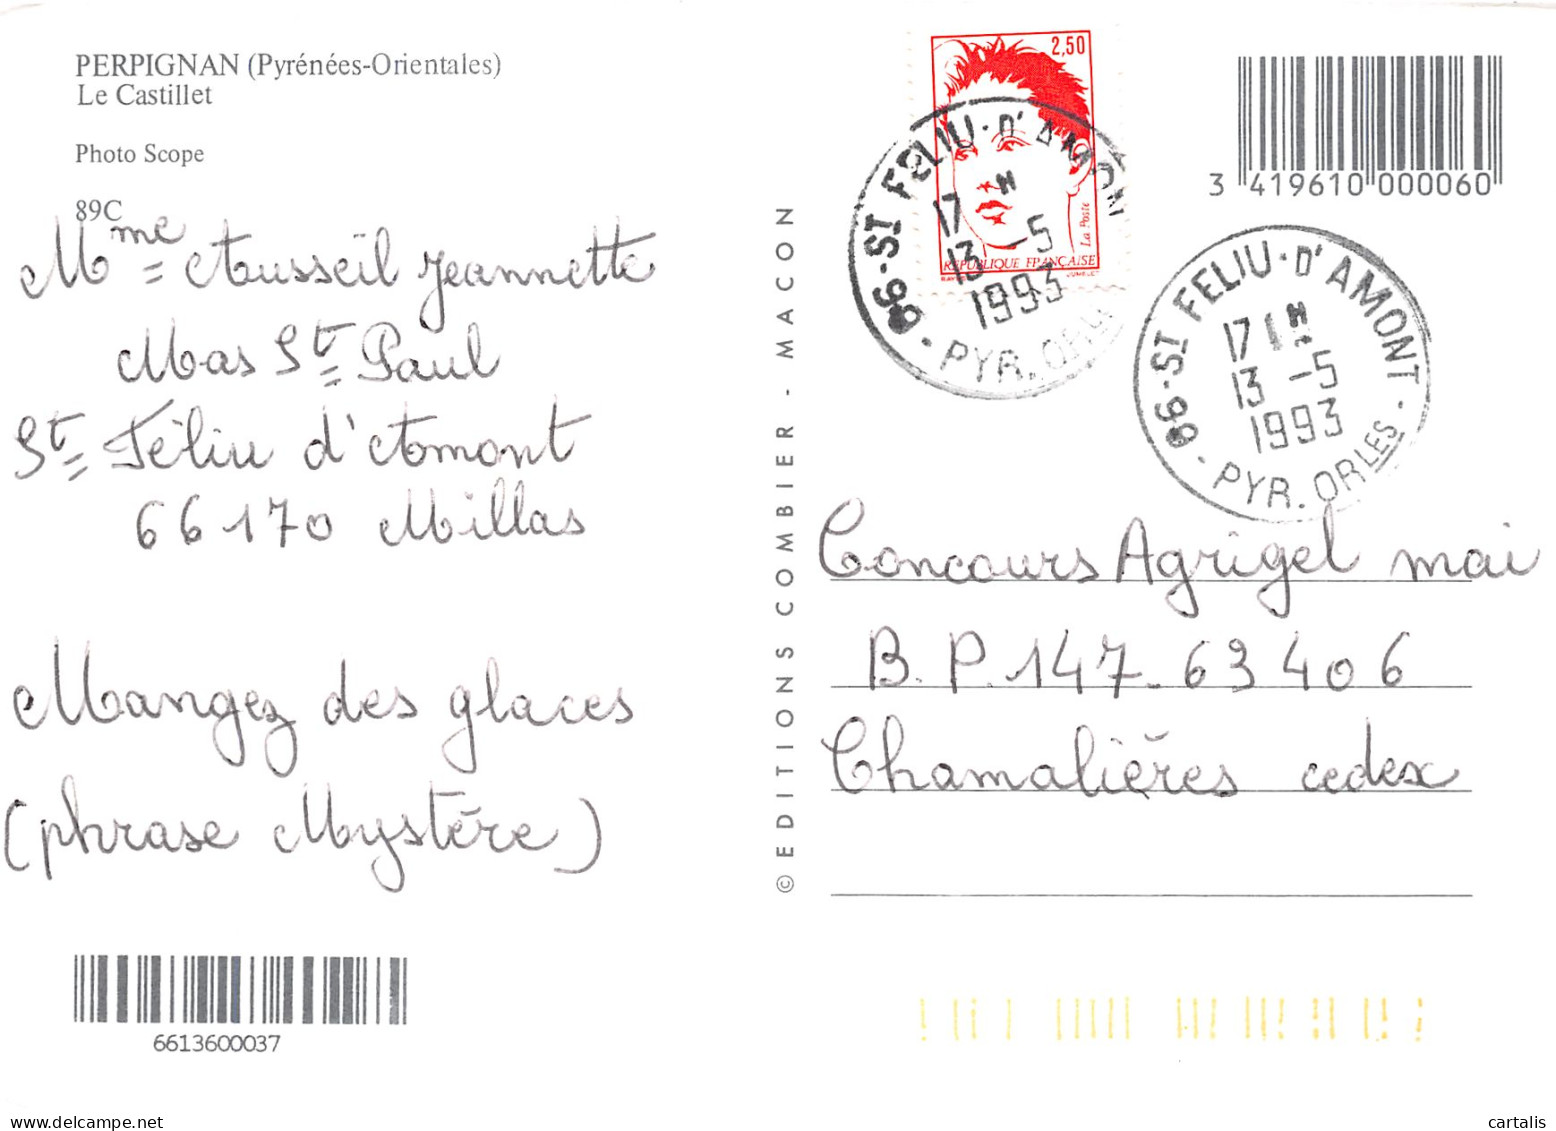 PERPIGNAN (Pyrénées-Orientales)
Le Castillet
Photo Scope
89C
Mme Ausseil Jeannette
Mas St Paul
St Féliu d'Amont
66170 Millas
Mangez des glaces
(phrase Mystère)
6613600037
© EDITIONS COMBIER - MACON
2,50
La Poste
REPUBLIQUE FRANÇAISE
JUMELET
66-ST FELIU-D'AMON
17 H
13 -5
1993
PYR. ORLES
3 419610 000060
66-ST FELIU-D'AMONT
17 H
13 -5
1993
PYR. ORLES
Concours Agrigel mai
B.P. 147-63406
Chamalières cedex
cartalis
www.delcampe.net